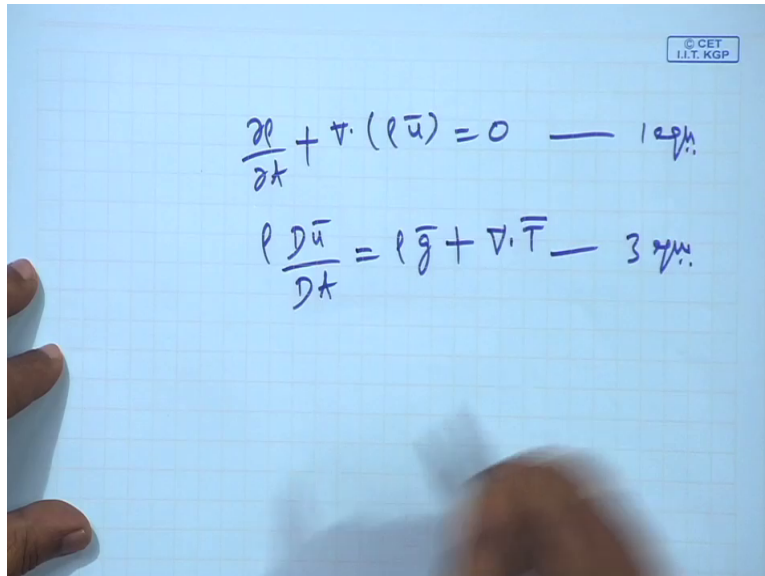 © CET
I.I.T. KGP
∂ρ/∂t + ∇. (ρ ū) = 0 — 1 eqn.
ρ Dū/Dt = ρ ḡ + ∇. T̿ — 3 eqn.